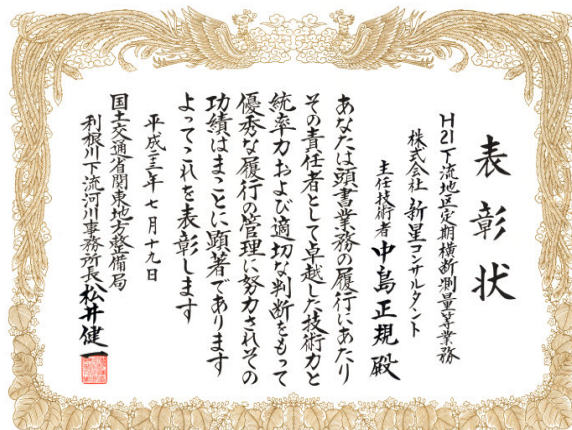 表彰状
H21下流地区定期横断測量等業務
株式会社 新星コンサルタント
主任技術者 中島正規 殿
あなたは頭書業務の履行にあたり
その責任者として卓越した技術力と
統率力および適切な判断をもって
優秀な履行の管理に努力されその
功績はまことに顕著であります
よってこれを表彰します
平成二三年七月十九日
国土交通省関東地方整備局
利根川下流河川事務所長 松井健一